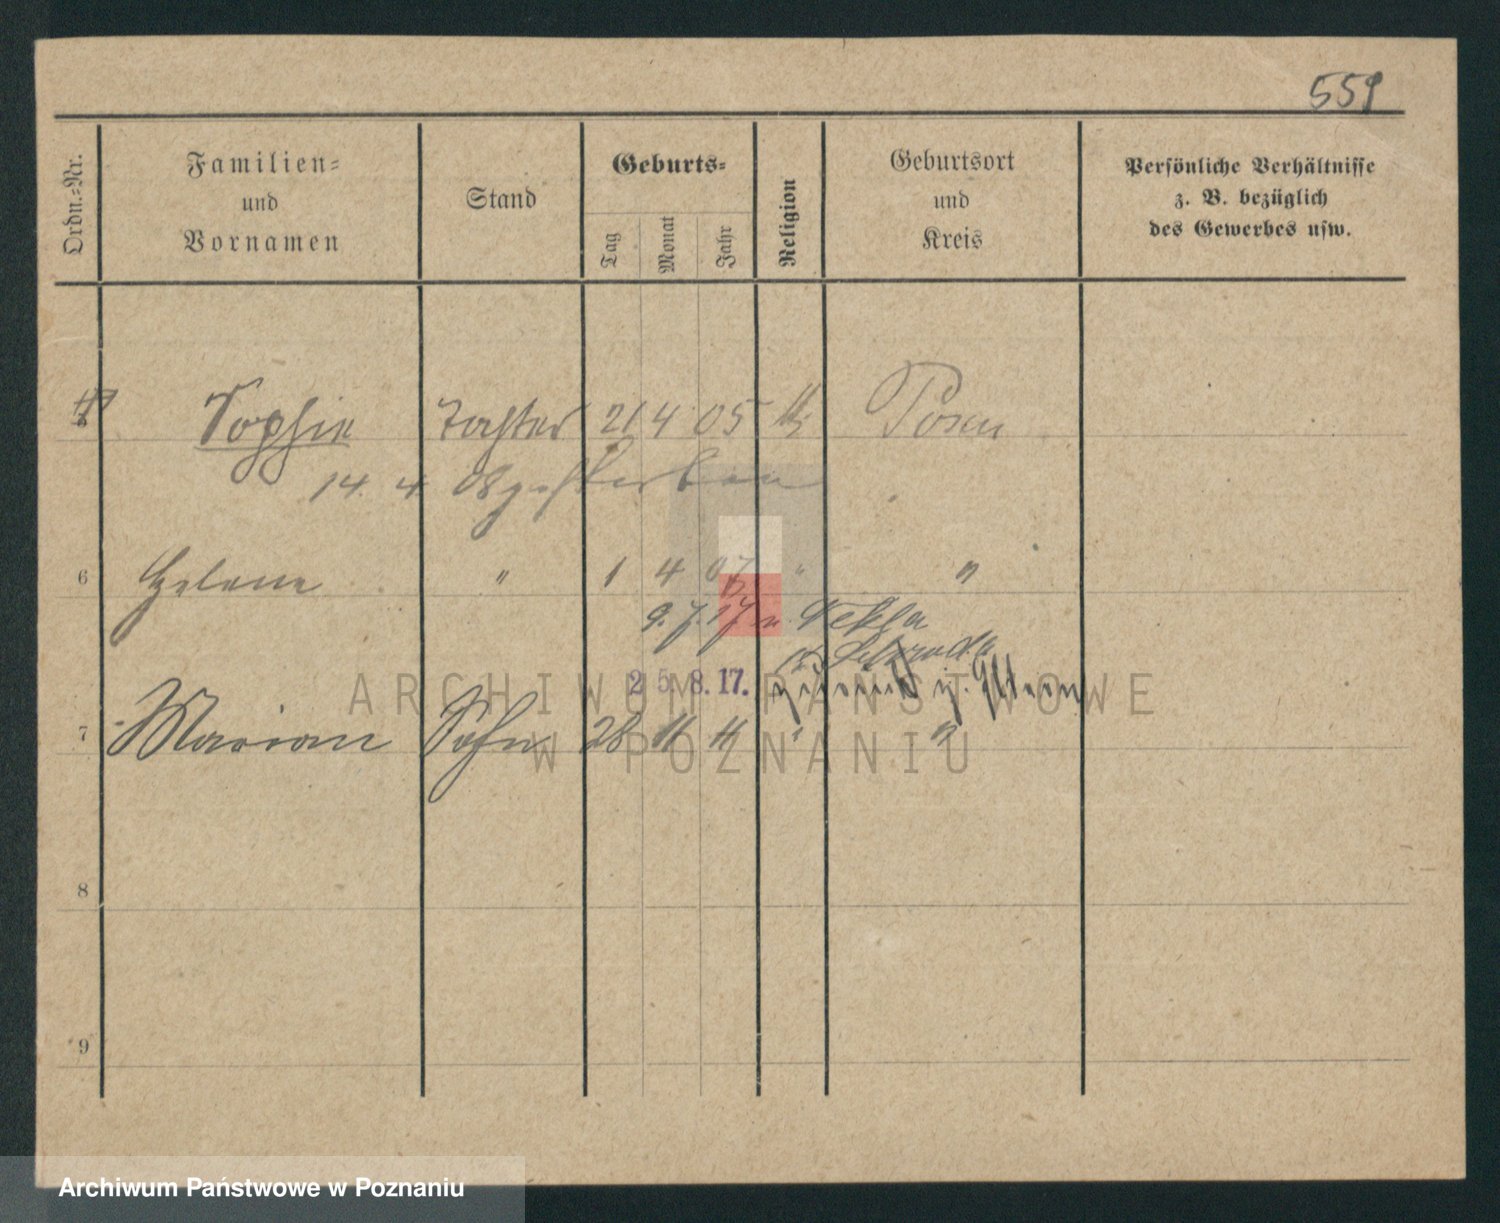 559
Ordn.-Nr.
Familien-
und
Vornamen
Stand
Geburts-
Tag
Monat
Jahr
Religion
Geburtsort
und
Kreis
Persönliche Verhältnisse
z. B. bezüglich
des Gewerbes usw.
Sophie Tochter 21 4 05 k. Posen
14. 4. 08 gestorben
6 Helene " 1 4 07 " "
9. 7. 17 n. Thekla
25. 8. 17. zurück z. Eltern
7 Marian Sohn 28 11 11 " "
8
9
ARCHIWUM PAŃSTWOWE
W POZNANIU
Archiwum Państwowe w Poznaniu